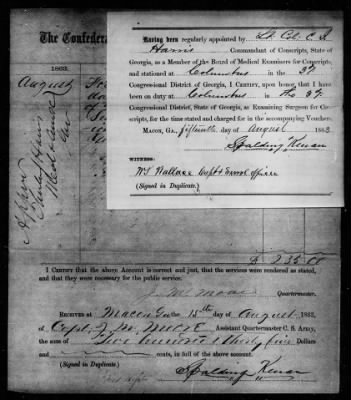 The Confeder
1863.
August
Having been regularly appointed by Lt. Col. C. J.
Harris Commandant of Conscripts, State of
Georgia, as a Member of the Board of Medical Examiners for Conscripts,
and stationed at Columbus in the 3d
Congressional District of Georgia, I CERTIFY, upon honor, that I have
been on duty at Columbus in the 3d
Congressional District, State of Georgia, as Examining Surgeon for Conscripts,
for the time stated and charged for in the accompanying Voucher.
MACON, GA., fifteenth day of August 1863
Spalding Kenan
WITNESS:
Wallace Capt & Enrol officer
(Signed in Duplicate.)
$ 235 00
I CERTIFY that the above Account is correct and just, that the services were rendered as stated,
and that they were necessary for the public service.
Quartermaster.
RECEIVED AT Macon Ga the 15th day of August 1863,
of Capt. Assistant Quartermaster C. S. Army,
the sum of Two hundred & thirty five Dollars
and cents, in full of the above account.
Spalding Kenan
(Signed in Duplicate.)